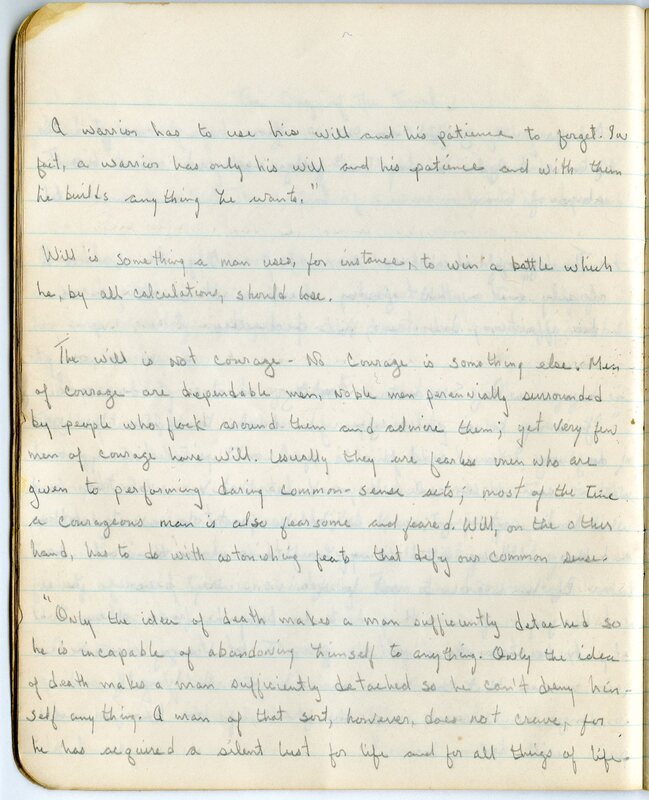 A warrior has to use his will and his patience to forget. In
fact, a warrior has only his will and his patience and with them
he builds anything he wants."
Will is something a man uses, for instance, to win a battle which
he, by all calculations, should lose.
The will is not courage - No Courage is something else. Men
of courage are dependable men, noble men perennially surrounded
by people who flock around them and admire them; yet very few
men of courage have will. Usually they are fearless men who are
given to performing daring common-sense acts; most of the time
a courageous man is also fearsome and feared. Will, on the other
hand, has to do with astonishing feats that defy our common sense.
"Only the idea of death makes a man sufficiently detached so
he is incapable of abandoning himself to anything. Only the idea
of death makes a man sufficiently detached so he can't deny him-
self anything. A man of that sort, however, does not crave, for
he has acquired a silent lust for life and for all things of life.